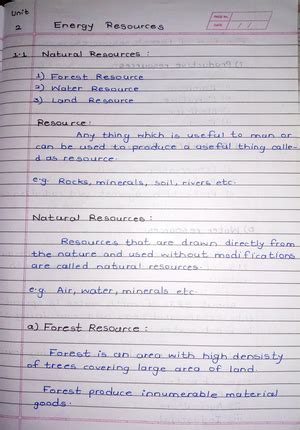 Unit
2 Energy Resources
PAGE NO.
DATE / /
1.1 Natural Resources :
1) Forest Resource
2) Water Resource
3) Land Resource
Resource :
Any thing which is useful to man or
can be used to produce a useful thing calle-
d as resource.
e.g. Rocks, minerals, soil, rivers etc.
Natural Resources :
Resources that are drawn directly from
the nature and used without modifications
are called natural resources.
e.g. Air, water, minerals etc.
a) Forest Resource :
Forest is an area with high densisty
of trees covering large area of land.
Forest produce innumerable material
goods.